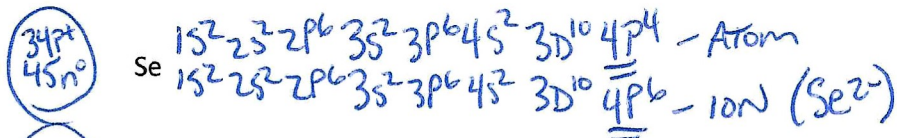 34p⁺
45n⁰
Se
1s² 2s² 2p⁶ 3s² 3p⁶ 4s² 3D¹⁰ 4p⁴ - ATOM
1s² 2s² 2p⁶ 3s² 3p⁶ 4s² 3D¹⁰ 4p⁶ - ION (Se²⁻)